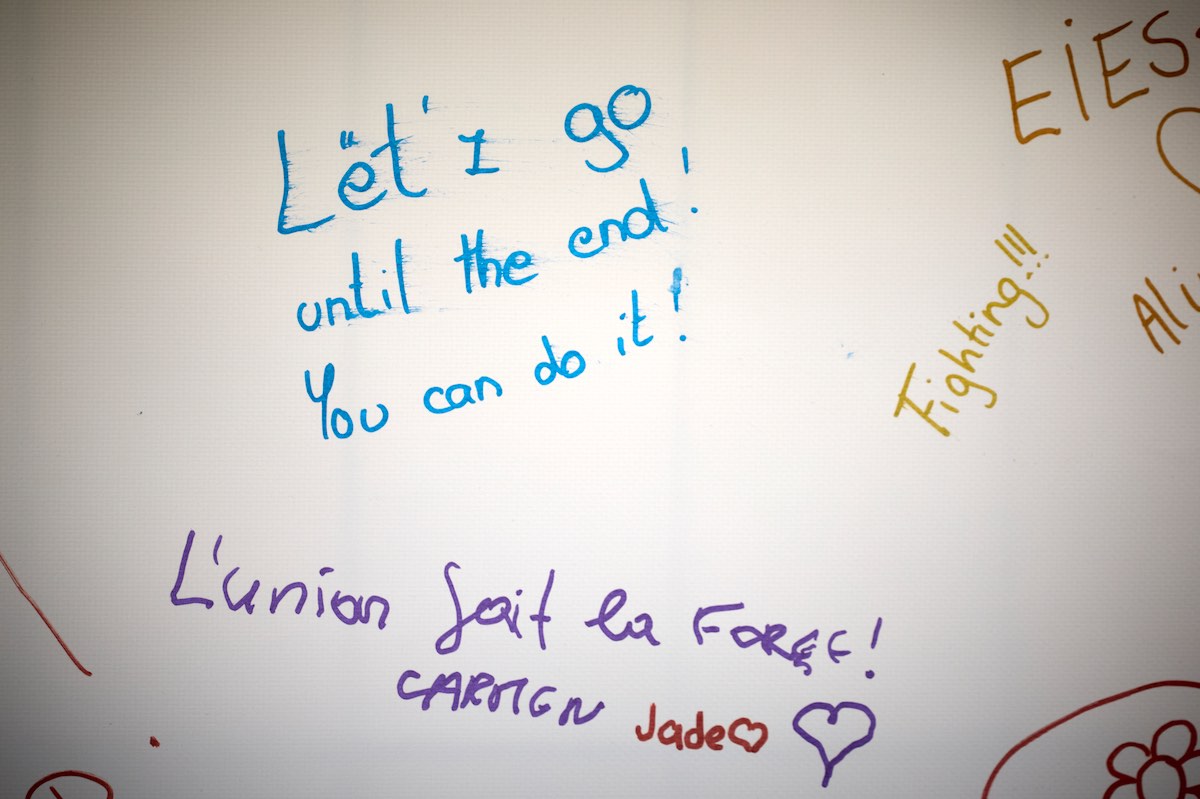 Lët's go
until the end!
You can do it!
EiES
Fighting!!!
Ali
L'union fait la FORCE!
CARMEN
Jade